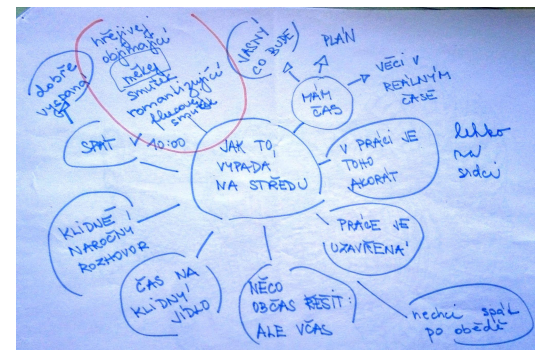 hřejivej
objímající
měkej
smutek
romantizující
flísovej
smutek
JASNÝ
CO BUDE
PLÁN
VĚCI V
REÁLNÝM
ČASE
MÁM
ČAS
dobře
vyspaná
SPÁT V 10:00
JAK TO
VYPADÁ
NA STŘEDU
V PRÁCI JE
TOHO
AKORÁT
lehko
na
srdci
KLIDNĚ I
NÁROČNÝ
ROZHOVOR
PRÁCE JE
UZAVŘENÁ
ČAS NA
KLIDNÝ
JÍDLO
NĚCO
OBČAS ŘEŠIT:
ALE VČAS
nechci spát
po obědě